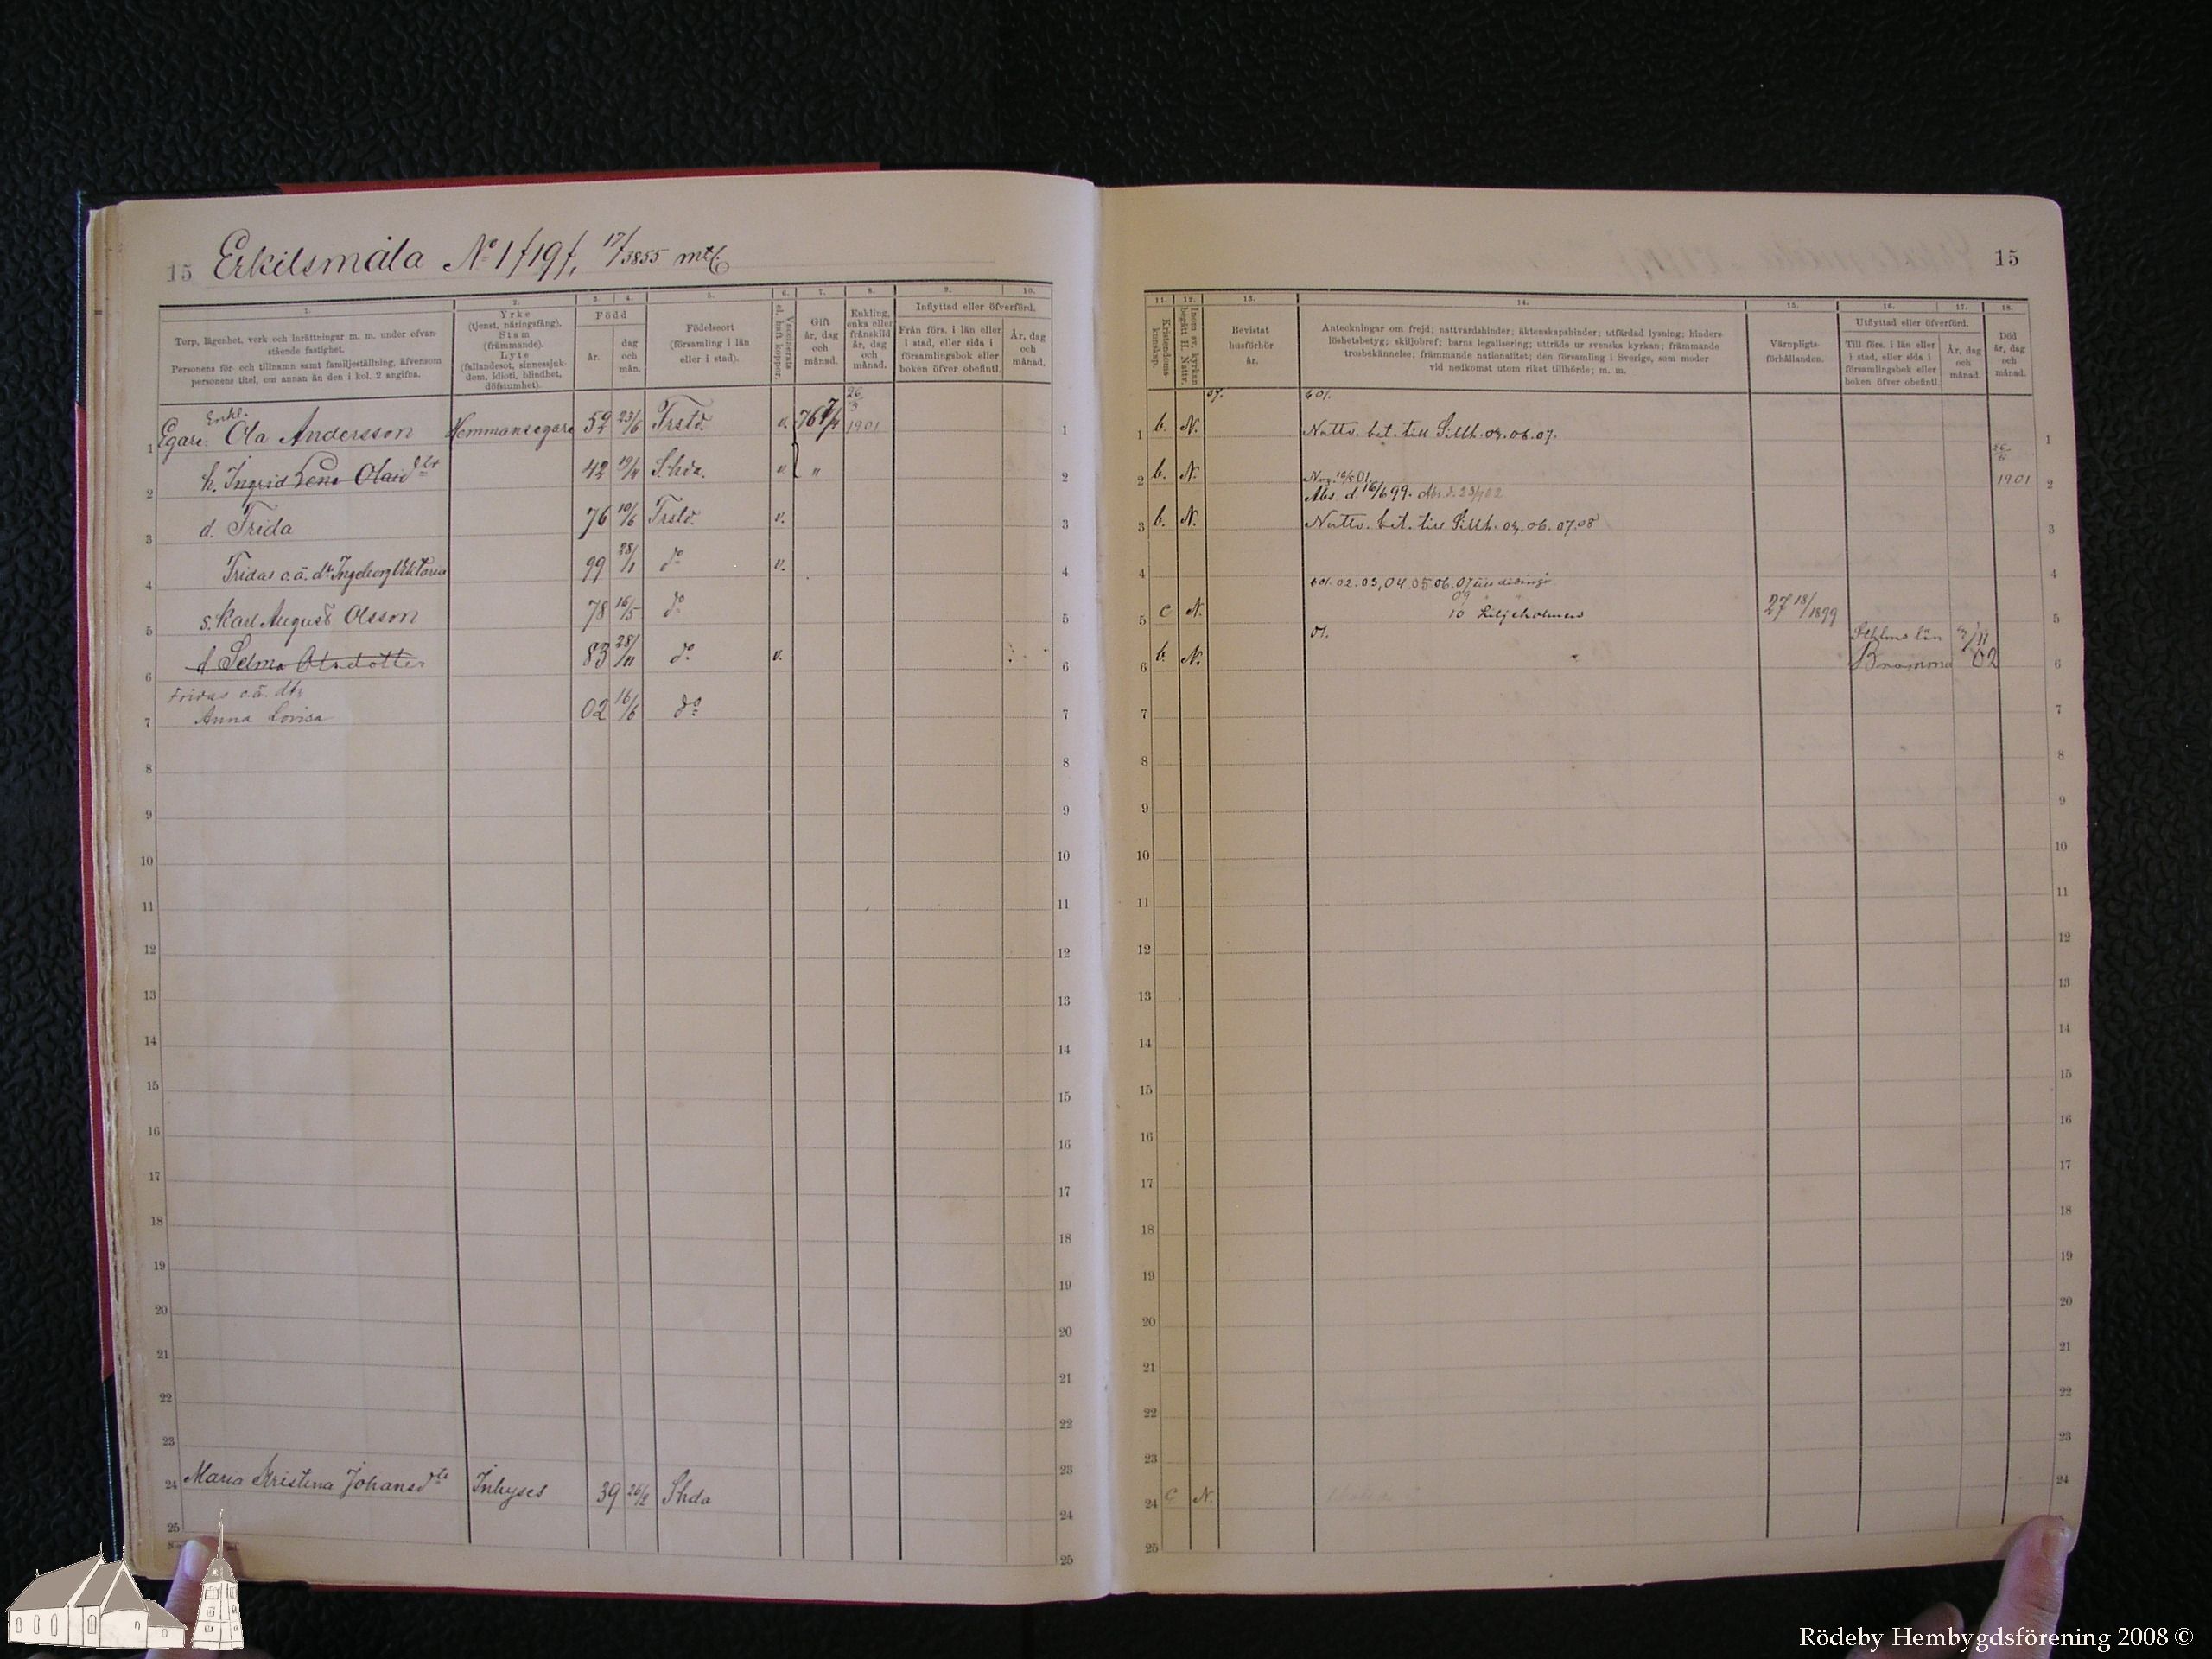 15 Erkilsmåla No 1/19/, 17/3855 mtl
1.
2.
3.
4.
5.
6.
7.
8.
9.
10.
Torp, lägenhet, verk och inrättningar m. m. under ofvan-
stående fastighet.
Personens för- och tillnamn samt familjeställning, äfvensom
personens titel, om annan än den i kol. 2 angifna.
Yrke
(tjenst, näringsfång),
Stam
(främmande).
Lyte
(fallandesot, sinnessjuk-
dom, idioti, blindhet,
döfstumhet).
Född
år.
dag
och
mån.
Födelseort
(församling i län
eller i stad).
Vaccinerats
el. haft koppor.
Gift
år, dag
och
månad.
Enkling,
enka eller
frånskild
år, dag
och
månad.
Inflyttad eller öfverförd.
Från förs. i län eller
i stad, eller sida i
församlingsbok eller
boken öfver obefintl.
År, dag
och
månad.
Enkl.
26
3
1 Egare: Ola Andersson Hemmansegare 52 23/6 Frstd. v. 76 7/4 1901 1
2 h. Ingrid Lena Olasdtr 42 19/11 Shda. v. " 2
3 d. Frida 76 10/6 Frstd. v. 3
4 Fridas o.ä. dr Ingeborg Viktoria 99 28/1 do v. 4
5 s. Karl August Olsson 78 16/5 do 5
6 d. Selma Olsdotter 83 28/11 do v. 6
Fridas o.ä. dtr
7 Anna Lovisa 02 16/6 do 7
8 8
9 9
10 10
11 11
12 12
13 13
14 14
15 15
16 16
17 17
18 18
19 19
20 20
21 21
22 22
23 23
24 Maria Kristina Johansdtr Inhyses 39 26/2 Shda 24
25 25
15
11.
12.
13.
14.
15.
16.
17.
18.
Kristendoms-
kunskap.
Inom sv. kyrkan
begått H. Nattv.
Bevistat
husförhör
år.
Anteckningar om frejd; nattvardshinder; äktenskapshinder; utfärdad lysning; hinders-
löshetsbetyg; skiljobref; barns legalisering; utträde ur svenska kyrkan; främmande
trosbekännelse; främmande nationalitet; den församling i Sverige, som moder
vid nedkomst utom riket tillhörde; m. m.
Värnpligts-
förhållanden.
Utflyttad eller öfverförd.
Till förs. i län eller
i stad, eller sida i
församlingsbok eller
boken öfver obefintl.
År, dag
och
månad.
Död
år, dag
och
månad.
07. 01.
1 b. N. Nattv. bet. till Sillh. 06. 07. 1
2 b. N. Abs. d 16/6 99. 1901 2
3 b. N. Nattv. bet. till Sillh. 06. 07. 08 3
4 4
01. 02. 03, 04. 05 06. 07
09
5 c N. 10 Liljeholmen 27 18/1899 5
01. Sthlms län 11
6 b. N. Bromma 02 6
7 7
8 8
9 9
10 10
11 11
12 12
13 13
14 14
15 15
16 16
17 17
18 18
19 19
20 20
21 21
22 22
23 23
24 c N. 24
25
Rödeby Hembygdsförening 2008 ©